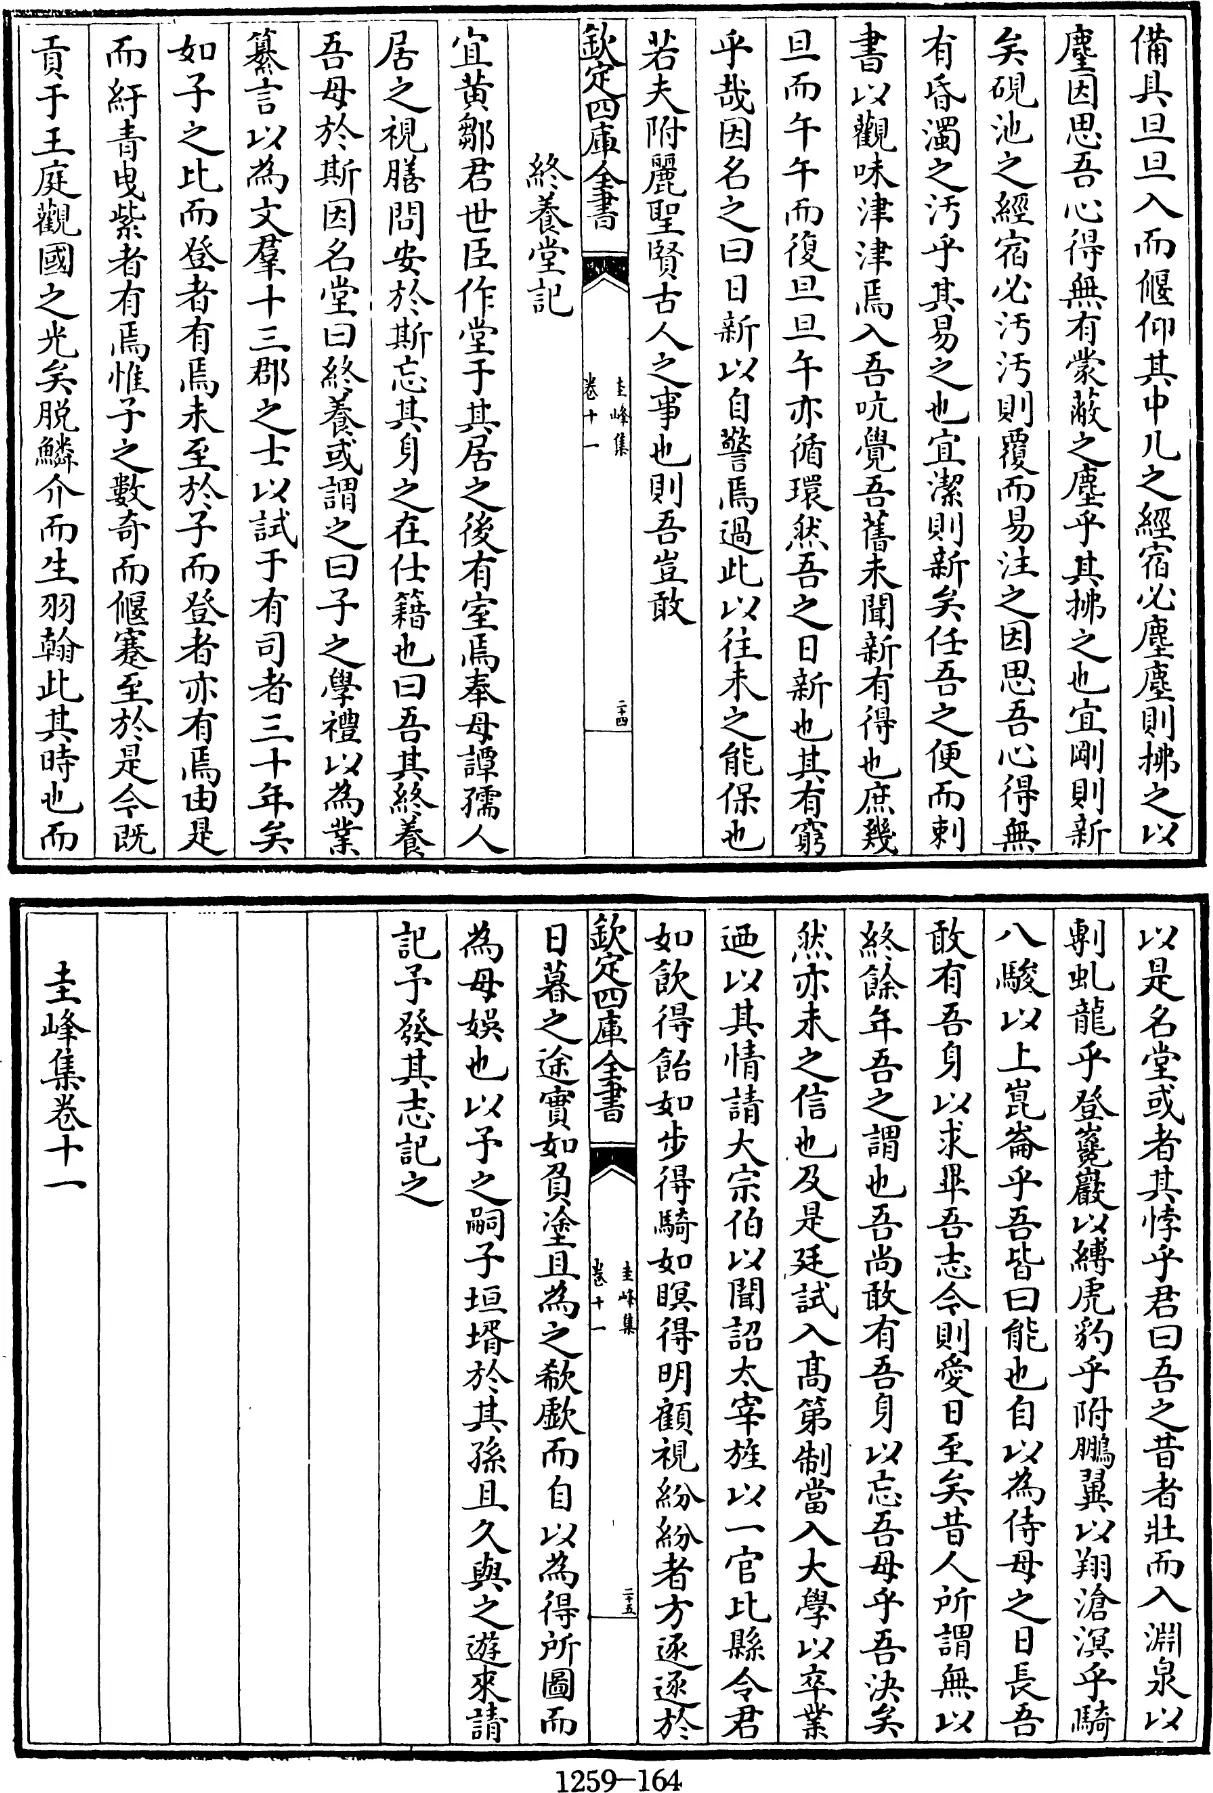 備具旦旦入而偃仰其中几之經宿必塵塵則拂之以
塵因思吾心得無有蒙蔽之塵乎其拂之也宜剛則新
矣硯池之經宿必汚汚則覆而易注之因思吾心得無
有昏濁之汚乎其易之也宜潔則新矣任吾之便而刺
書以觀味津津焉入吾吭覺吾舊未聞新有得也庶幾
旦而午午而復旦旦午亦循環然吾之日新也其有窮
乎哉因名之曰日新以自警焉過此以往未之能保也
若夫附麗聖賢古人之事也則吾豈敢
欽定四庫全書
圭峰集
卷十一
二十四
終養堂記
宜黄鄒君世臣作堂于其居之後有室焉奉母譚孺人
居之視膳問安於斯忘其身之在仕籍也曰吾其終養
吾母於斯因名堂曰終養或謂之曰子之學禮以為業
纂言以為文羣十三郡之士以試于有司者三十年矣
如子之比而登者有焉未至於子而登者亦有焉由是
而紆青曳紫者有焉惟子之數奇而偃蹇至於是今既
貢于王庭觀國之光矣脱鱗介而生羽翰此其時也而
以是名堂或者其悖乎君曰吾之昔者壯而入淵泉以
剸虬龍乎登巉巖以縛虎豹乎附鵬翼以翔滄溟乎騎
八駿以上崑崙乎吾皆曰能也自以為侍母之日長吾
敢有吾身以求畢吾志今則愛日至矣昔人所謂無以
終餘年吾之謂也吾尚敢有吾身以忘吾母乎吾決矣
然亦未之信也及是廷試入髙第制當入大學以卒業
迺以其情請大宗伯以聞詔太宰旌以一官比縣令君
如飲得飴如步得騎如瞑得明顧視紛紛者方逐逐於
欽定四庫全書
圭峰集
卷十一
二十五
日暮之途實如負塗且為之欷歔而自以為得所圖而
為母娛也以予之嗣子垣壻於其孫且久與之遊來請
記予發其志記之
圭峰集卷十一
1259-164